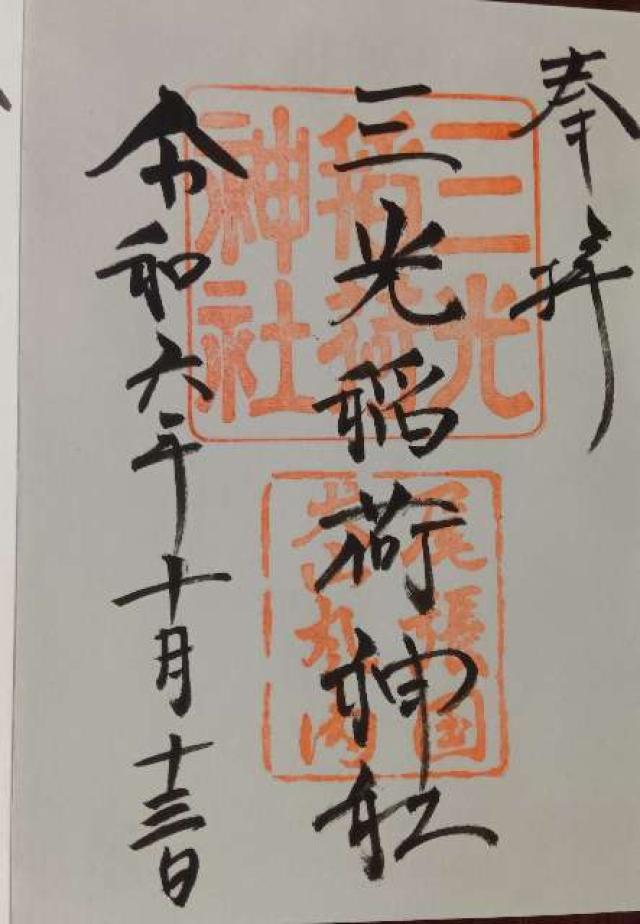 奉拝
三光稲荷神社
令和六年十月十三日
三光
稲荷
神社
尾張国
犬山丸の内